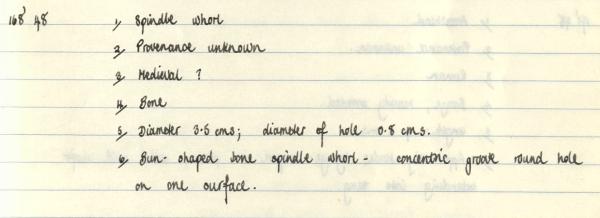 168' 48 1, Spindle whorl
2, Provenance unknown
3, Medieval ?
4, Bone
5, Diameter 3.5 cms; diameter of hole 0.8 cms.
6, Bun-shaped bone spindle whorl - concentric groove round hole
on one surface.